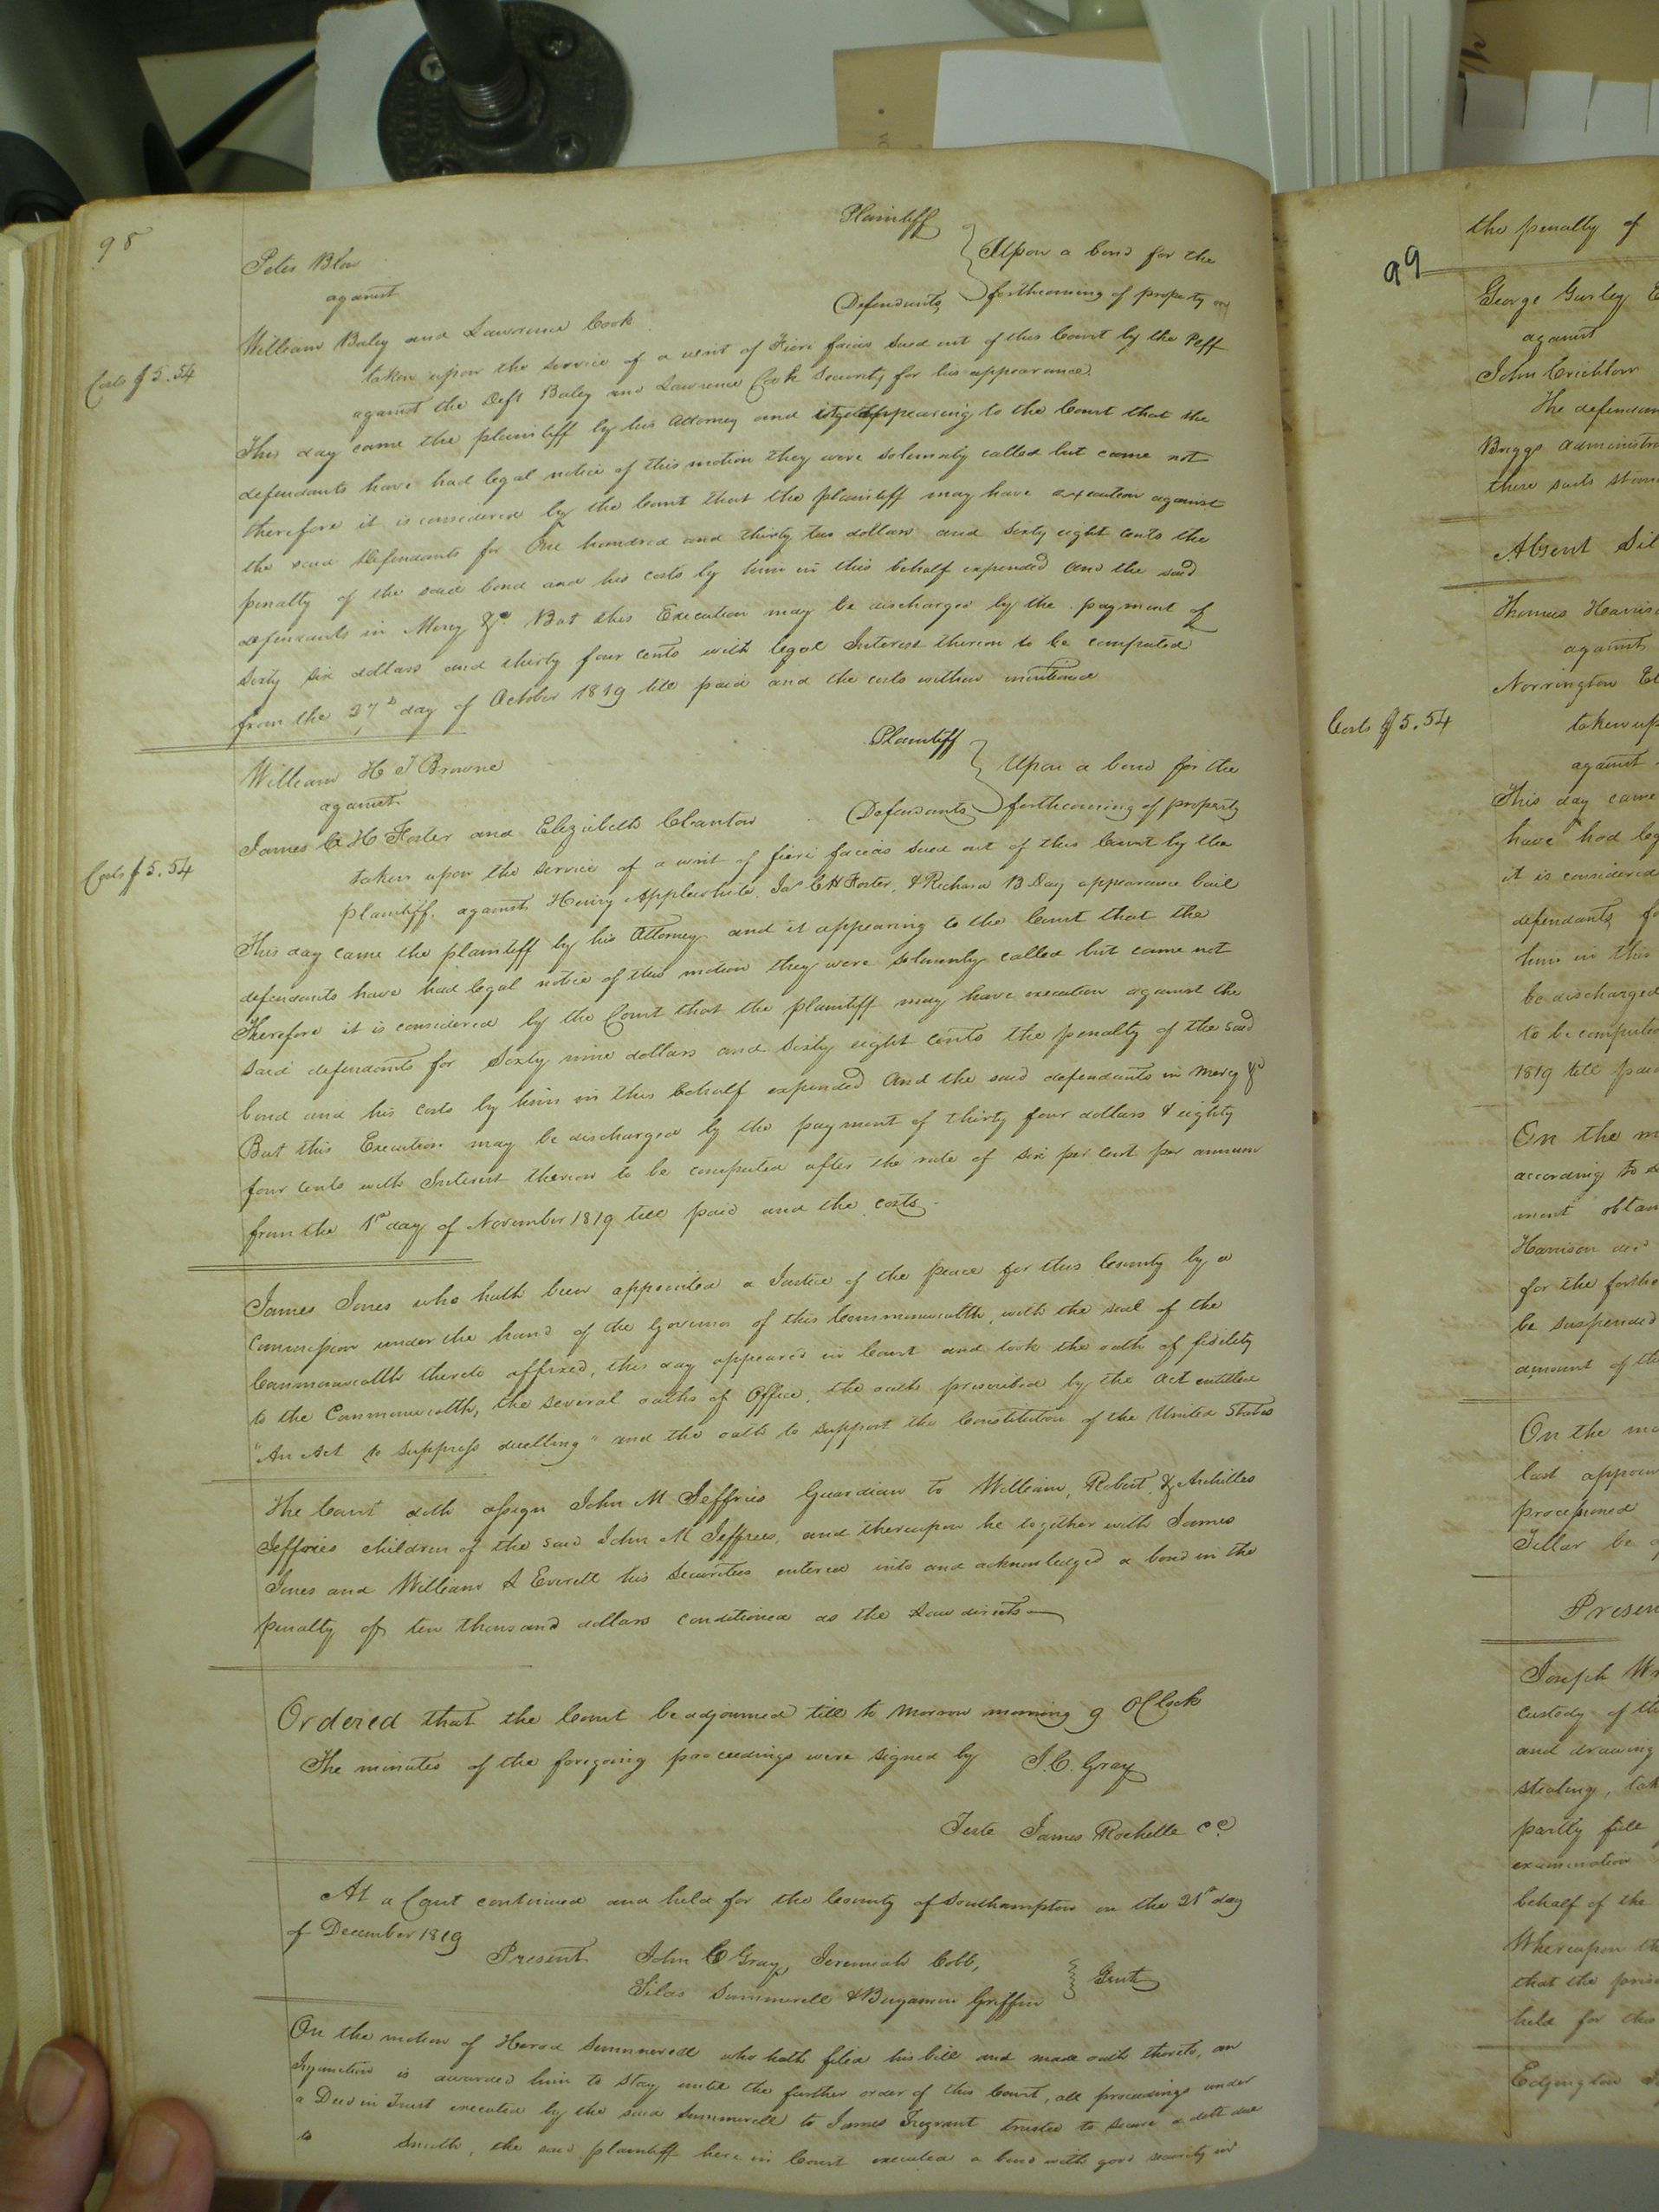 98
Plaintiff
Peter Blow
against
Upon a bond for the
William Baley and Lawrence Cook
Defendants
forthcoming of property
Costs $5.54
taken upon the service of a writ of Fieri facias sued out of this Court by the Plff
against the Deft Baley and Lawrence Cook Security for his appearance.
This day came the plaintiff by his Attorney and appearing to the Court that the
defendants have had legal notice of this motion they were solemnly called but came not
therefore it is considered by the Court that the plaintiff may have execution against
the said Defendants for One hundred and thirty two dollars and sixty eight cents the
penalty of the said bond and his costs by him in this behalf expended And the said
defendants in Mercy &c But this Execution may be discharged by the payment of
Sixty six dollars and thirty four cents with legal Interest thereon to be computed
from the 27th day of October 1819 till paid and the costs within mentioned
Plaintiff
William H J Browne
against
Upon a bond for the
James C H Foster and Elizabeth Clanton
Defendants
forthcoming of property
Costs $5.54
taken upon the service of a writ of fieri facias sued out of this Court by the
plaintiff against Henry Applewhite, Jas C H Foster, & Richard B Day appearance bail
This day came the plaintiff by his Attorney and it appearing to the Court that the
defendants have had legal notice of this motion they were solemnly called but came not
Therefore it is considered by the Court that the plaintiff may have execution against the
said defendants for Sixty nine dollars and sixty eight cents the penalty of the said
bond and his costs by him in this behalf expended And the said defendants in Mercy &c
But this Execution may be discharged by the payment of thirty four dollars & eighty
four cents with Interest thereon to be computed after the rate of six per cent per annum
from the 1st day of November 1819 till paid and the costs.
James Jones who hath been appointed a Justice of the peace for this County by a
Commission under the hand of the Governor of this Commonwealth, with the seal of the
Commonwealth thereto affixed, this day appeared in Court and took the oath of fidility
to the Commonwealth, the several oaths of Office, the oath prescribed by the Act entitled
"An Act to suppress duelling" and the oath to support the Constitution of the United States
The Court doth assign John M Jeffries Guardian to William, Robert, & Archilles
Jeffries children of the said John M Jeffries, and thereupon he together with James
Jones and William S Everett his Securities entered into and acknowledged a bond in the
penalty of ten thousand dollars conditioned as the Law directs
Ordered that the Court be adjourned till to Morrow morning 9 OClock
The minutes of the foregoing proceedings were signed by J. C. Gray
Teste James Rochelle CC
At a Court continued and held for the County of Southampton on the 21st day
of December 1819
Present John C Gray, Jeremiah Cobb,
Silas Summerell & Benjamin Griffin
Gent
On the motion of Herod Summerell who hath filed his bill and made oath thereto, an
Injunction is awarded him to stay until the further order of this Court, all proceedings under
a Deed in Trust executed by the said Summerell to James Trezvant trustee to secure a debt due
to Smith, the said plaintiff here in Court executed a bond with good security in
99
the penalty of
George Gurley
against
John Crichlow
The defendan
Briggs administra
these suits stan
Absent Sil
Thomas Harris
against
Norrington
Costs $5.54
taken up
against
This day came
have had leg
it is considered
defendants fo
him in this
be discharged
to be compute
1819 till paid
On the m
according to
ment obtan
Harrison
for the fortho
be suspended
amount of the
On the mo
last appoin
processioned
be
Presen
Joseph
custody of th
and drawing
stealing, tak
partly full
examination
behalf of the
Whereupon th
that the pris
held for this
Edgington